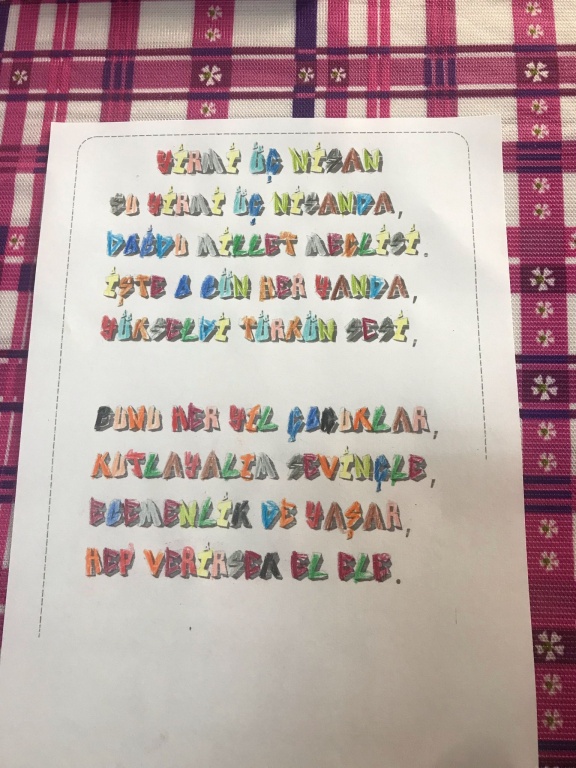 YİRMİ ÜÇ NİSAN
SU YİRMİ ÜÇ NİSANDA,
DOĞDU MİLLET MECLİSİ.
İŞTE O GÜN HER YANDA,
YÜKSELDİ TÜRKÜN SESİ,
BUNU HER YIL ÇOCUKLAR,
KUTLAYALIM SEVİNÇLE,
EGEMENLİK DE YAŞAR,
HEP VERİRSEK EL ELE.